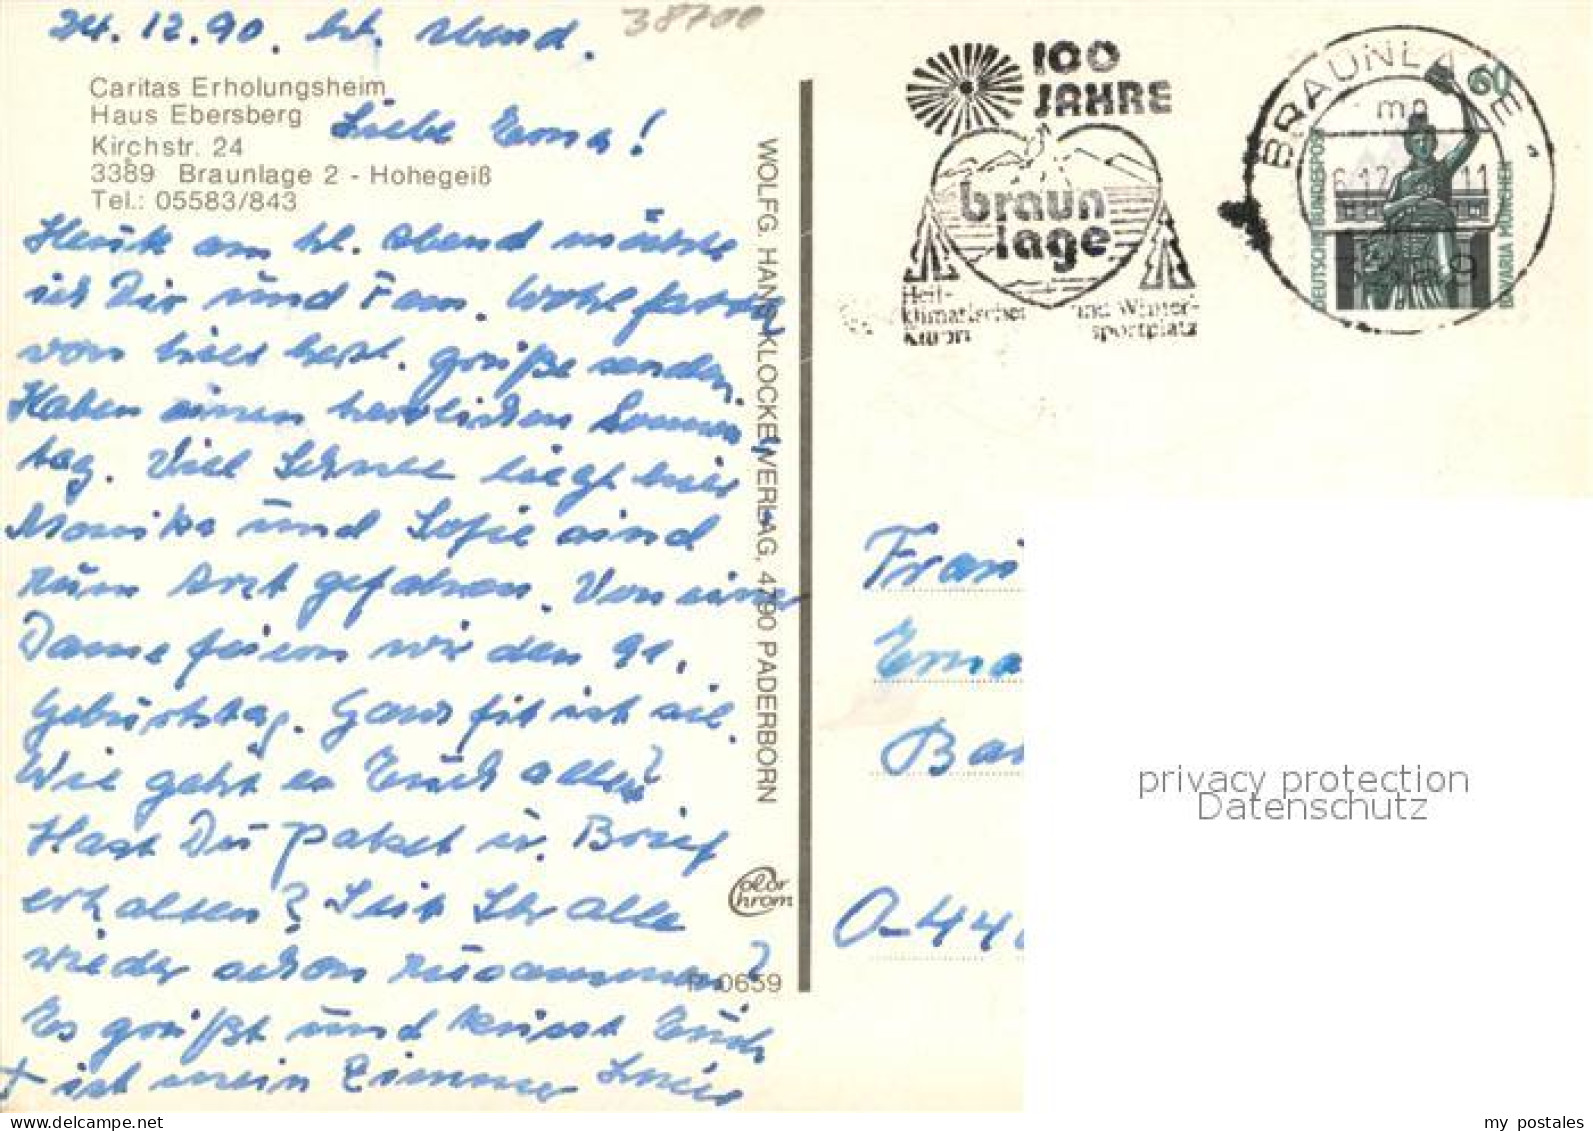 24.12.90. hl. Abend.
38700
Caritas Erholungsheim
Haus Ebersberg
Kirchstr. 24
3389 Braunlage 2 - Hohegeiß
Tel.: 05583/843
Liebe Erna!
Heute am hl. Abend möchte
ich Dir und Fam. Wohlfarth
von hier herzl. Grüße senden.
Haben einen herrlichen Sonnen-
tag. Viel Schnee liegt hier
Monika und Sofie sind
zum Arzt gefahren. Von einer
Dame feiern wir den 91.
Geburtstag. Ganz fit ist sie.
Wie geht es Euch allen?
Hast Du Paket u. Brief
erhalten? Seit Ihr alle
wieder schon zusammen?
Es grüßt und küsst Euch
+ ist mein Zimmer Lucie
WOLFG. HANS KLOCKE VERLAG, 4790 PADERBORN
Color Chrom
P 0659
100
JAHRE
braun
lage
Heil-
klimatischer
Kurort
und Winter-
sportplatz
BRAUNLAGE
mn
3389
60
DEUTSCHE BUNDESPOST
BAVARIA MÜNCHEN
Frau
Erna
Ba
O-44
privacy protection
Datenschutz
my postales